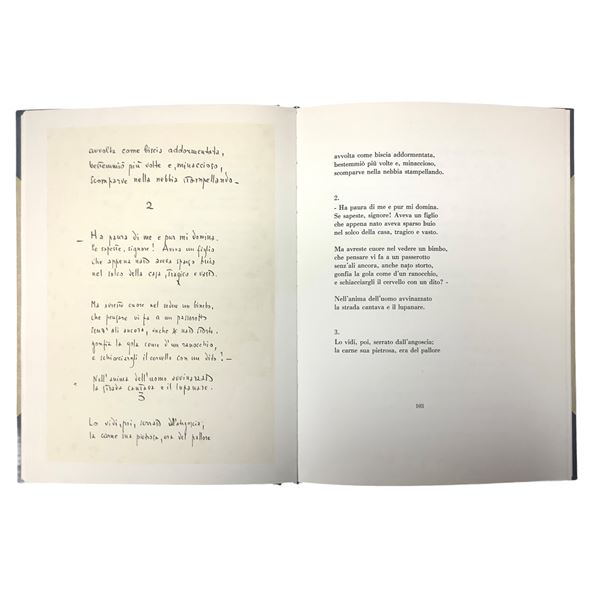 avvolta come biscia addormentata,
bestemmiò più volte e, minaccioso,
scomparve nella nebbia stampellando_
2
_ Ha paura di me e pur mi domina.
Se sapeste, signore! Aveva un figlio
che appena nato aveva sparso buio
nel solco della casa, tragico e vasto.
Ma avreste cuore nel vedere un bimbo,
che pensare vi fa a un passerotto
senz'ali ancora, anche nato storto,
gonfia la gola come d'un ranocchio,
e schiacciargli il cervello con un dito! _
Nell'anima dell'uomo avvinazzato
la strada cantava e il lupanare.
3
Lo vidi, poi, serrato dall'angoscia;
la carne sua pietrosa, era del pallore
avvolta come biscia addormentata,
bestemmiò più volte e, minaccioso,
scomparve nella nebbia stampellando.
2.
- Ha paura di me e pur mi domina.
Se sapeste, signore! Aveva un figlio
che appena nato aveva sparso buio
nel solco della casa, tragico e vasto.
Ma avreste cuore nel vedere un bimbo,
che pensare vi fa a un passerotto
senz'ali ancora, anche nato storto,
gonfia la gola come d'un ranocchio,
e schiacciargli il cervello con un dito? -
Nell'anima dell'uomo avvinazzato
la strada cantava e il lupanare.
3.
Lo vidi, poi, serrato dall'angoscia;
la carne sua pietrosa, era del pallore
103